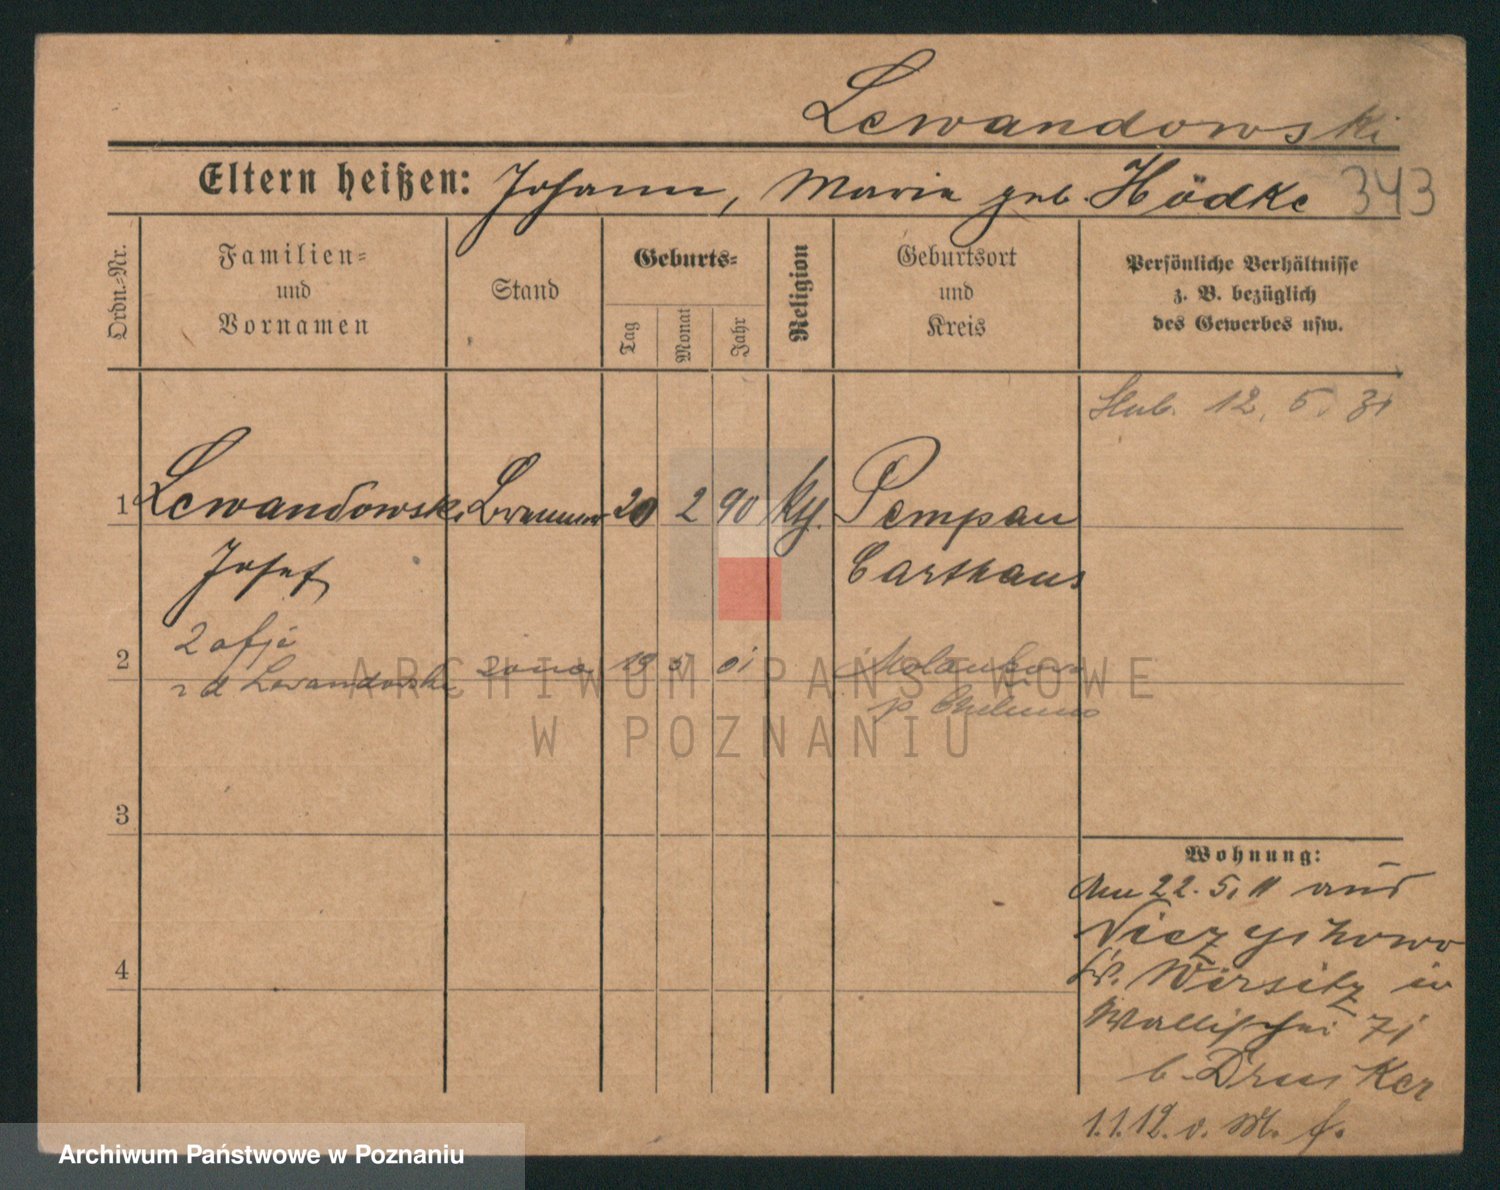 Lewandowski
Eltern heißen: Johann, Maria geb. Hödke 343
Ordn.-Nr.
Familien-
und
Vornamen
Stand
Geburts-
Tag
Monat
Jahr
Religion
Geburtsort
und
Kreis
Persönliche Verhältnisse
z. B. bezüglich
des Gewerbes usw.
12. 5. 31
1 Lewandowski 20 2 90 Pempau
Josef Carthaus
Zofja
2 zd Lewandowska żona 19 5 01
p Chełmno
ARCHIWUM PAŃSTWOWE
W POZNANIU
3
4
Wohnung:
Am 22. 5. 11 aus
Kr. Wirsitz in
Wallischei 71
b. Drucker
1.1.12. v. M. f.
Archiwum Państwowe w Poznaniu